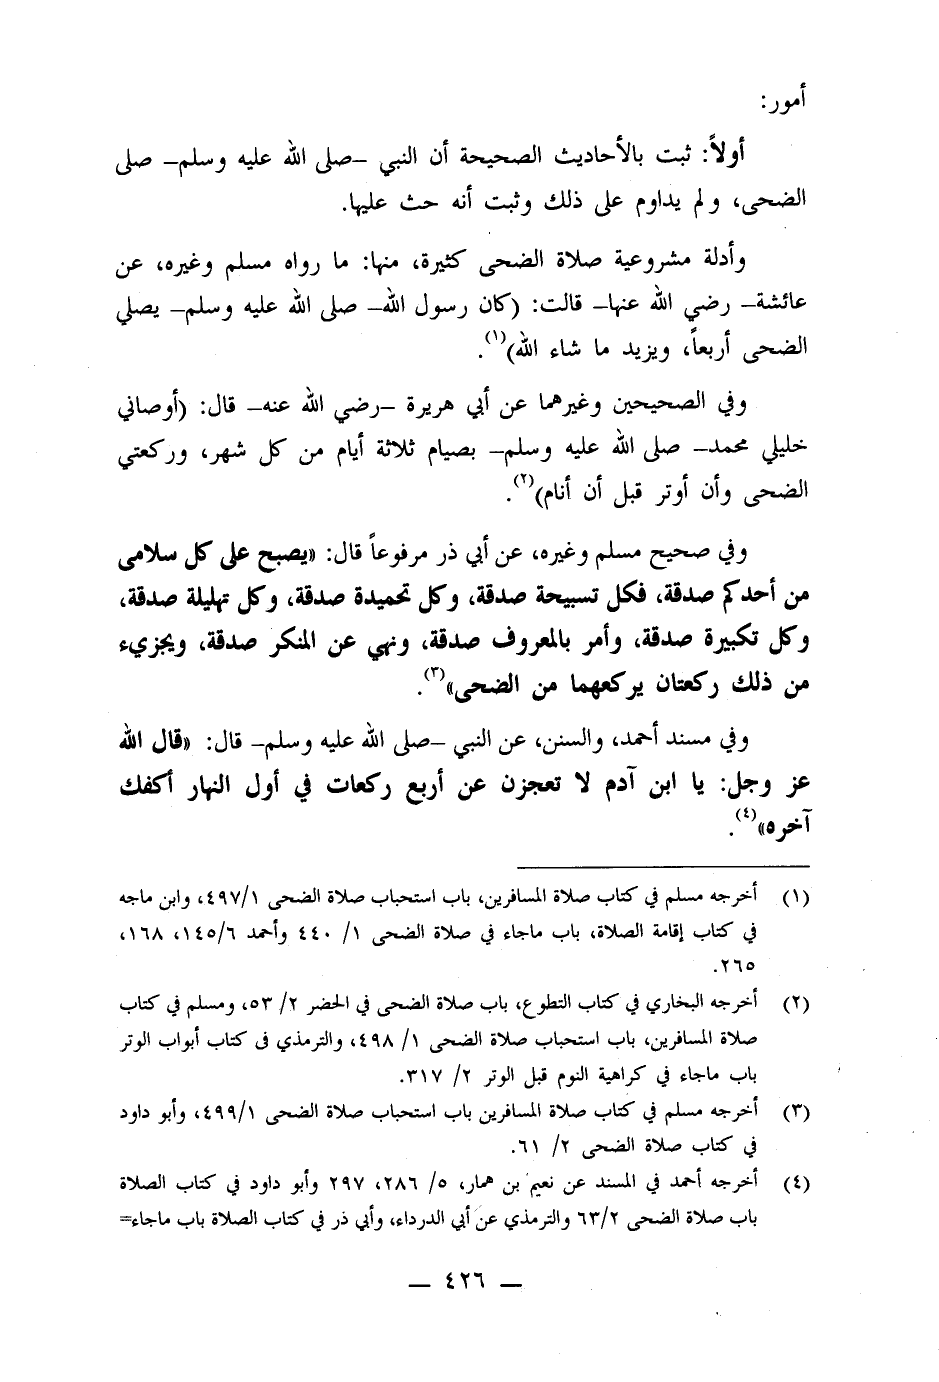 أمور:
أولاً: ثبت بالأحاديث الصحيحة أن النبي –صلى الله عليه وسلم– صلى
الضحى، ولم يداوم على ذلك وثبت أنه حث عليها.
وأدلة مشروعية صلاة الضحى كثيرة، منها: ما رواه مسلم وغيره، عن
عائشة– رضي الله عنها– قالت: (كان رسول الله– صلى الله عليه وسلم– يصلي
الضحى أربعاً، ويزيد ما شاء الله)(١).
وفي الصحيحين وغيرهما عن أبي هريرة –رضي الله عنه– قال: (أوصاني
خليلي محمد– صلى الله عليه وسلم– بصيام ثلاثة أيام من كل شهر، وركعتي
الضحى وأن أوتر قبل أن أنام)(٢).
وفي صحيح مسلم وغيره، عن أبي ذر مرفوعاً قال: «يصبح على كل سلامى
من أحدكم صدقة، فكل تسبيحة صدقة، وكل تحميدة صدقة، وكل تهليلة صدقة،
وكل تكبيرة صدقة، وأمر بالمعروف صدقة، ونهي عن المنكر صدقة، ويجزيء
من ذلك ركعتان يركعهما من الضحى»(٣).
وفي مسند أحمد، والسنن، عن النبي –صلى الله عليه وسلم– قال: «قال الله
عز وجل: يا ابن آدم لا تعجزن عن أربع ركعات في أول النهار أكفك
آخره»(٤).
(١) أخرجه مسلم في كتاب صلاة المسافرين، باب استحباب صلاة الضحى ٤٩٧/١، وابن ماجه
في كتاب إقامة الصلاة، باب ماجاء في صلاة الضحى ١/ ٤٤٠ وأحمد ١٤٥/٦، ١٦٨،
٢٦٥.
(٢) أخرجه البخاري في كتاب التطوع، باب صلاة الضحى في الحضر ٢/ ٥٣، ومسلم في كتاب
صلاة المسافرين، باب استحباب صلاة الضحى ١/ ٤٩٨، والترمذي فى كتاب أبواب الوتر
باب ماجاء في كراهية النوم قبل الوتر ٢/ ٣١٧.
(٣) أخرجه مسلم في كتاب صلاة المسافرين باب استحباب صلاة الضحى ٤٩٩/١، وأبو داود
في كتاب صلاة الضحى ٢/ ٦١.
(٤) أخرجه أحمد في المسند عن نعيم بن همار، ٥/ ٢٨٦، ٢٩٧ وأبو داود في كتاب الصلاة
باب صلاة الضحى ٦٣/٢ والترمذي عن أبي الدرداء، وأبي ذر في كتاب الصلاة باب ماجاء=
— ٤٢٦ —